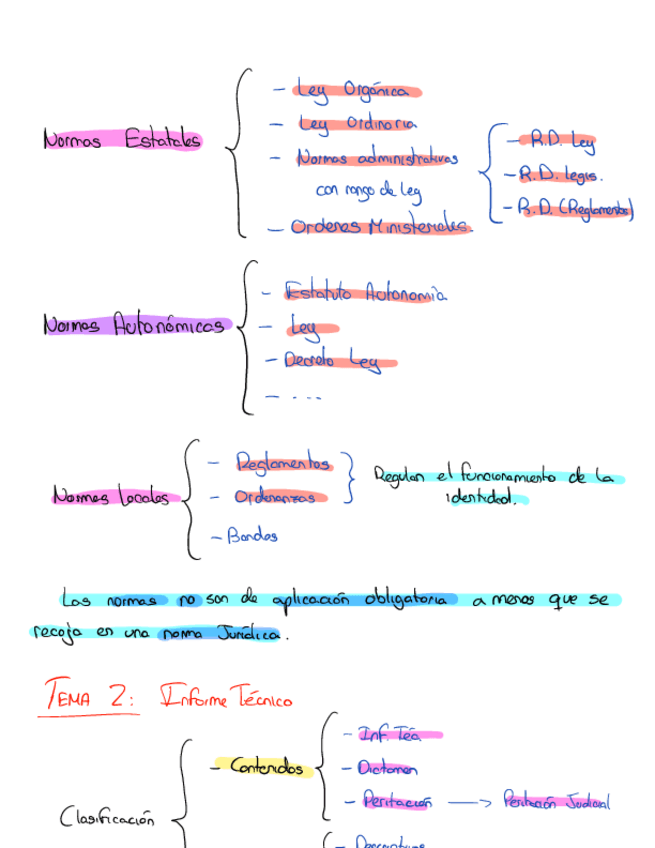 Normas Estatales
- Ley Orgánica
- Ley Ordinaria
- Normas administrativas
con rango de ley
- R.D. Ley
- R.D. legis.
- R.D. (Reglamentos)
- Ordenes Ministeriales.
Normas Autonómicas
- Estatuto Autonomía
- Ley
- Decreto Ley
- ...
Normas Locales
- Reglamentos
- Ordenanzas
- Bandos
Regulan el funcionamiento de la
identidad.
Las normas no son de aplicación obligatoria a menos que se
recoja en una norma Jurídica.
TEMA 2: Informe Técnico
Clasificación
- Contenidos
- Inf. Téc
- Dictamen
- Peritación → Peritación Judicial
- Descriptivos